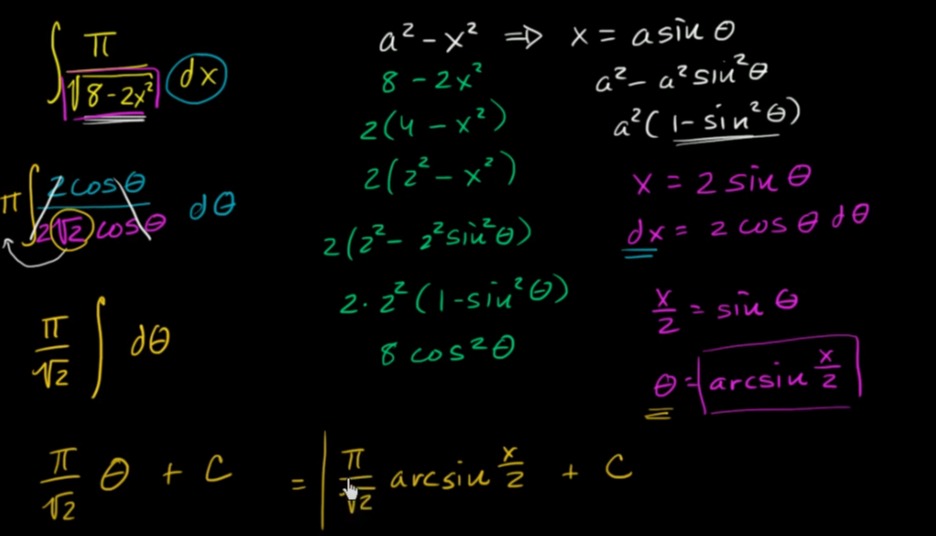 ∫ π / √(8 - 2x²) dx
π ∫ 2 cos θ / 2√2 cos θ dθ
π/√2 ∫ dθ
π/√2 θ + C = π/√2 arcsin x/2 + C
a² - x² ⇒ x = a sin θ
8 - 2x²
2(4 - x²)
2(2² - x²)
2(2² - 2² sin² θ)
2 · 2² (1 - sin² θ)
8 cos² θ
a² - a² sin² θ
a² (1 - sin² θ)
x = 2 sin θ
dx = 2 cos θ dθ
x/2 = sin θ
θ = arcsin x/2